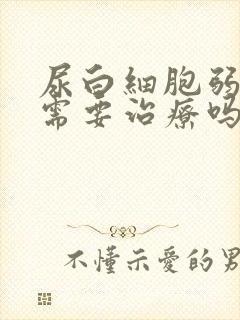 尿白細胞弱
需要治療嗎
不懂示愛的男